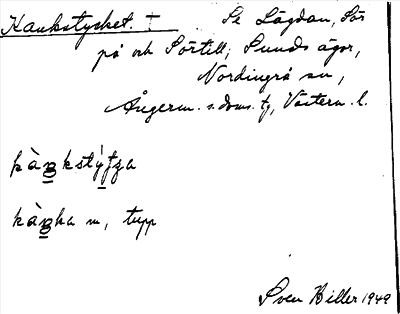 Kankstycket. † Se Lågdan, Sör
på och Sörtill; Sunds ägor,
Nordingrå sn,
Ångerm. s. doms. tg, Västern. l.
kàŋkstỳʃʒa
kàŋka m, tupp
Sven Hiller 1949